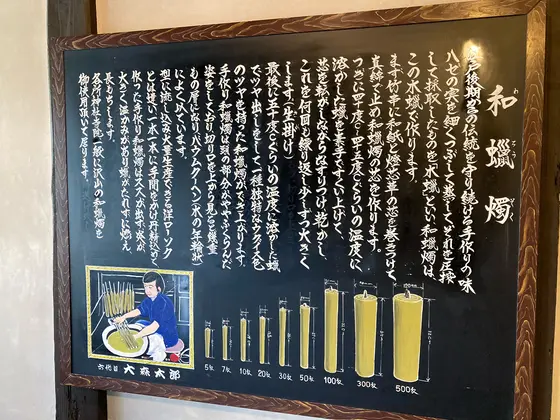 和蠟燭
わろうそく
江戸後期の伝統を守り続ける手作りの味
ハゼの実を細くつぶして蒸してそれを圧搾
して採取したものを木蠟といい和蠟燭は
この木蠟で作ります。
まず竹串に和紙と燈芯草の芯を巻きつけて
真綿で止め和蠟燭の芯を作ります。
つぎに四十度〜四十五度ぐらいの温度に
溶かした蠟を素手ですくい上げて、
芯を転がしながらなすりつけ乾かし、
これを何回も繰り返して少しずつ太き
くします（生掛け）
最後に五十度ぐらいの温度に溶かした蠟
でツヤ出しをして一種独特なウグイス色
のツヤを持った和蠟燭ができ上がります。
手作り和蠟燭は頭の部分がややふくらんだ
姿をしており切り口を上から見ると幾重
もの層になりバウムクーヘン（木の年輪状）
によく似ています。
型に流し込み大量生産できる洋ローソク
とは違い一本一本に手間をかけ丹精込めて
作った手作り和蠟燭はススが出ず、炎が
大きく温かみがあり蠟がたれずに燃え、
長もちします。
各所神社寺院一般に沢山の和蠟燭を
御使用頂いて居ります。
六代目 大森太郎
5匁 7匁 10匁 20匁 30匁 50匁 100匁 300匁 500匁